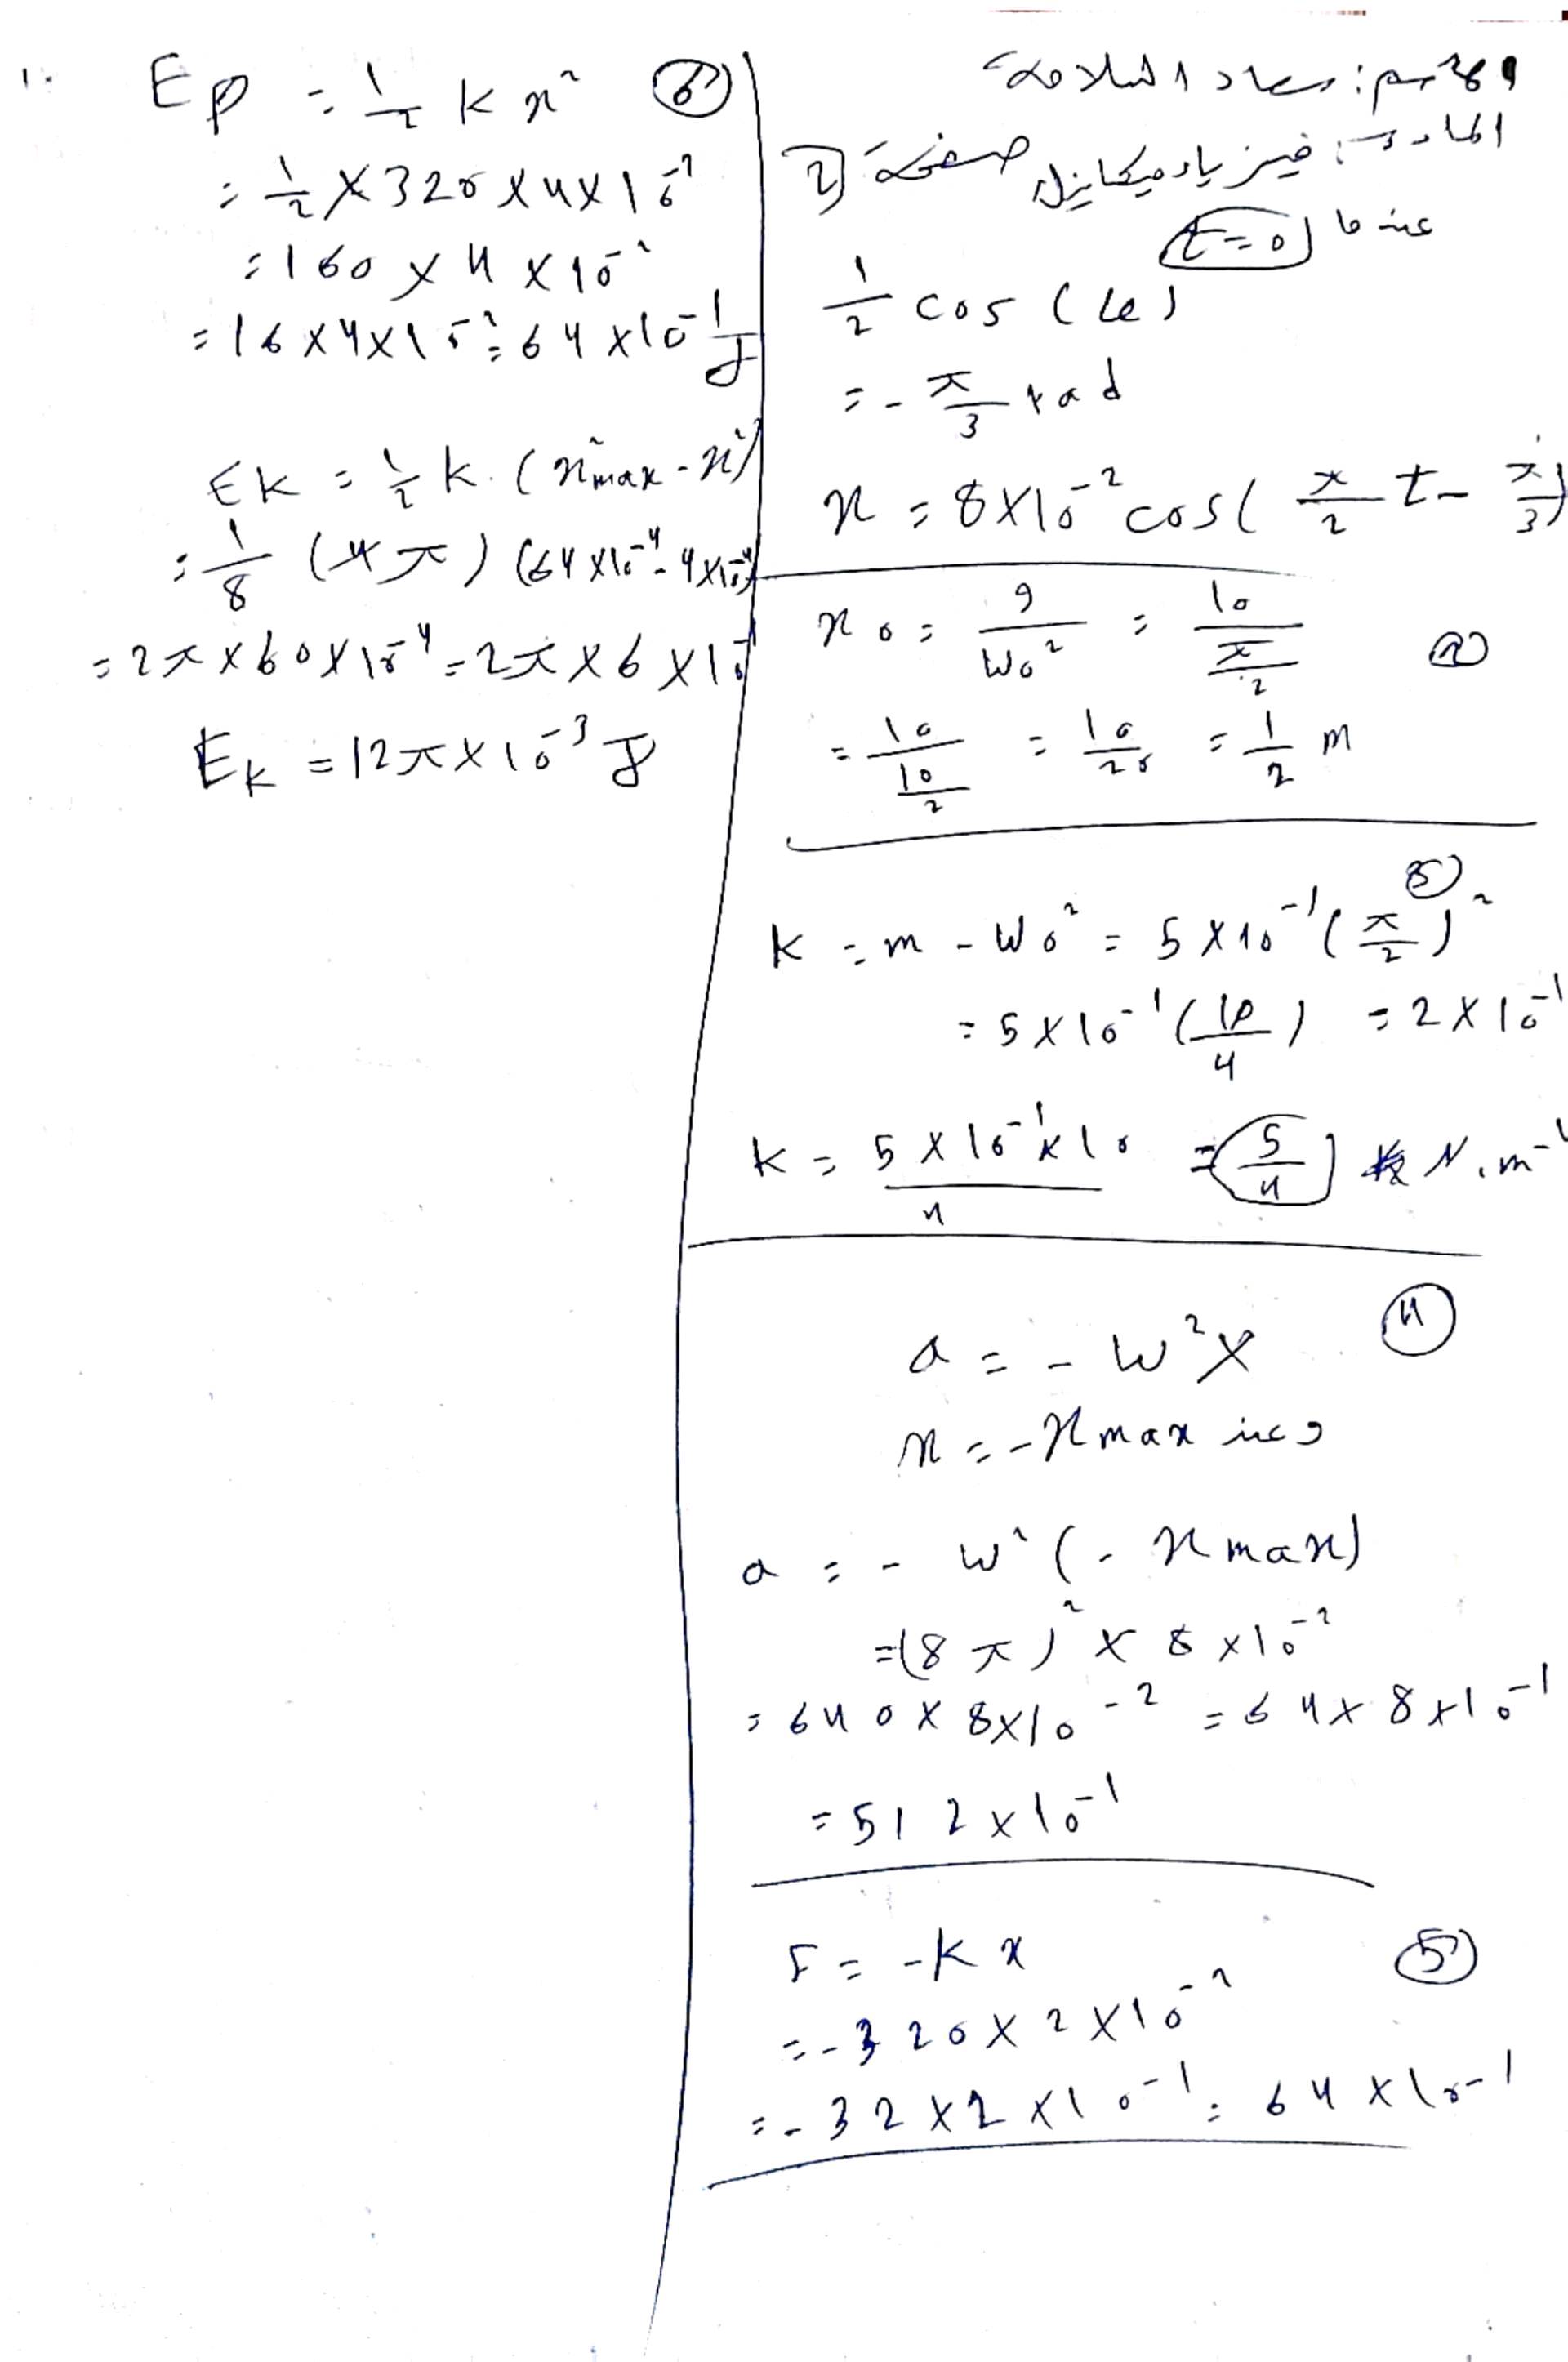 الاسم: سعاد السلامة
المادة: فيزياء ميكانيك صفحة 2
عندما t=0
1/2 cos(φ)
= -π/3 rad
x = 8×10^-2 cos(π/2 t - π/3)
x0 = g/w0^2 = 10/(π/2) (2)
= 10/(10/2) = 10/20 = 1/2 m
(3)
K = m - w0^2 = 5×10^-1 (π/2)^2
= 5×10^-1 (10/4) = 2×10^-1
K = 5×10^-1×10/4 = 5/4 N.m^-1
(4)
a = -w^2 x
x = -xmax عند
a = -w^2 (-xmax)
= (8π)^2 × 8×10^-2
= 640×8×10^-2 = 64×8×10^-1
= 512×10^-1
F = -Kx (5)
= -320×2×10^-2
= -32×2×10^-1 = 64×10^-1
Ep = 1/2 K x^2 (6)
= 1/2 × 320×4×10^-2
= 160×4×10^-2
= 16×4×10^-2 = 64×10^-1 J
Ek = 1/2 k.(x^2max - x^2)
= 1/8 (4π) (64×10^-4 - 4×10^-4)
= 2π×60×10^-4 = 2π×6×10
Ek = 12π×10^-3 J